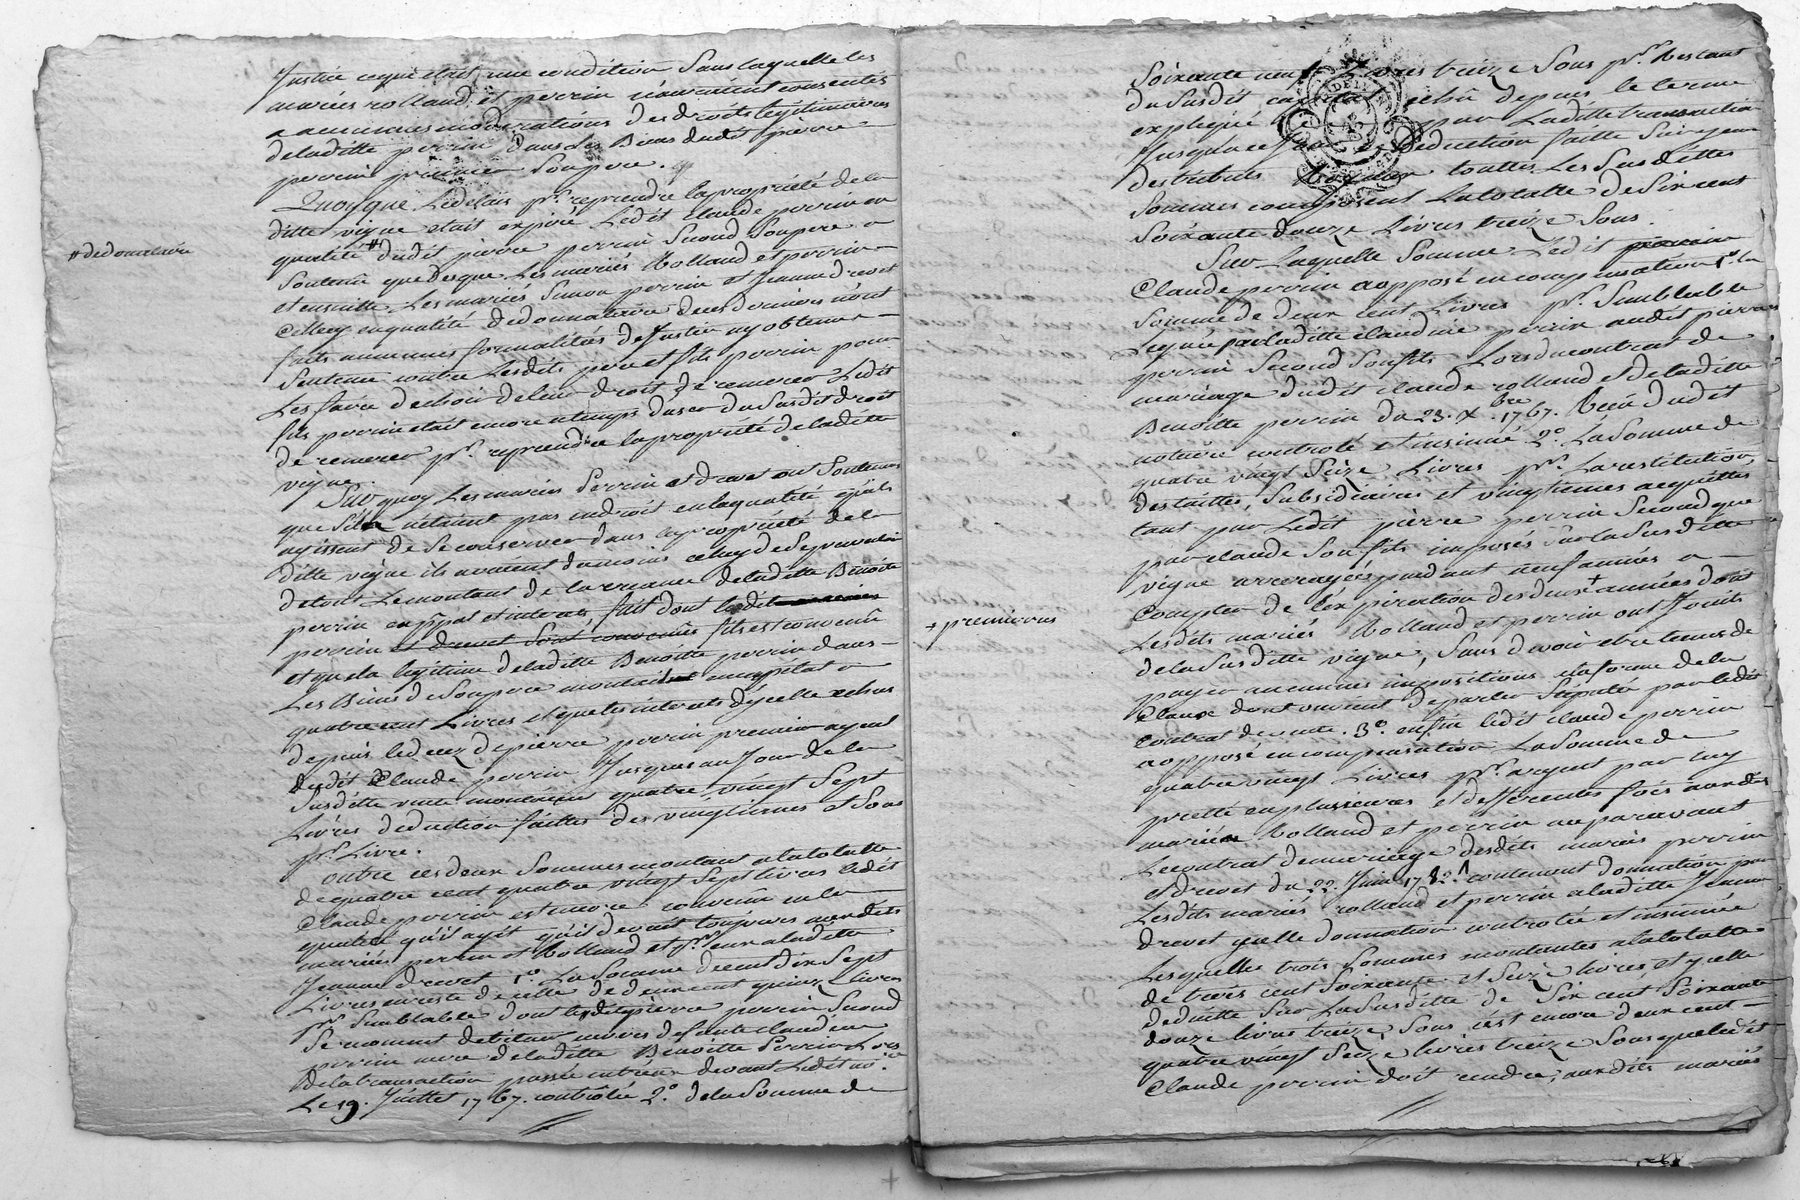 Justice ce qui etait une condition Sans laquelle les
mariés rolland et perrin n'auraient consentis
a aucunes moderations des droits légitimaires
de laditte perrin dans Les Biens dudit pierre
perrin premier Son pere.
Quoique Le delais pr. reprendre la propriété de la
ditte vigne etait expiré Ledit Claude perrin en
qualité # dudit pierre perrin Second Son pere a
# de donataire
Soutenu que des que Les mariés Rolland et perrin
et ensuitte Les mariés Simon perrin et Jeanne drevet
Celluy en qualité de donnataire de ces derniers n'ont
faits aucunnes formalités de Justice ny obtenu
Sentence contre Lesdits pere et fils perrin pour
Les faire dechoir de leur droit de remerer Ledit
fils perrin etait encore a temps d'user du Susdit droit
de remerer pr. reprendre la propriété de laditte
vigne.
Sur quoy Les mariés Perrin et drevet ont Soutenus
que S'ils n'étaient pas en droit en la qualité qu'ils
agissent de Se conserver dans la propriété de la
ditte vigne ils avaient du moins celluy de Se prevaloir
de tout Le montant de la créance de laditte Benoite
perrin en ppal et interets, fait dont ledit
perrin et drevet Sont convenus fils est convenu
et que la legitime de laditte Benoitte perrin dans
Les Biens de Son pere montait a
quatre cent Livres et que les interets d'ycelle echus
depuis le decez de pierre perrin premier ayeul
dudit Claude perrin Jusques au Jour de la
Susditte vente montaient quatre vingt Sept
Livres deduction faitte des vingtiemes et Sous
pr. Livre.
outre ces deux Sommes montant a la totalle
de quatre cent quatre vingt Sept livres ledit
Claude perrin est encore convenu en la
qualité qu'il agit qu'il devait toujours auxdits
mariés perrin et Rolland et pr. eux a laditte
Jeanne drevet 1o. La Somme de cent dix Sept
Livres en reste de celle de deux cent quinze Livres
pr. Semblable dont ledit pierre perrin Second
Se reconnut debiteur envers defunte claudine
perrin mere de laditte Benoitte Perrin Lors
de la transaction passée entreux devant Ledit no.re
Le 19. Juillet 1767. controlée 2.o de la Somme de
Soixante neuf Livres treize Sous pr. Restant
du Susdit echû depuis le terme
expliqué par Laditte transaction
Jusqu'a ce Jour deduction faitte
des tributs toutes Les Susdittes
Sommes composent La totalle de Six cent
Soixante douze Livres treize Sous.
Sur Laquelle Somme Ledit perrin
Claude perrin a opposé en compensation 1o. la
Somme de deux cent Livres pr. Semblable
reçue par laditte claudine perrin audit pierre
perrin Second Son fils Lors du contrat de
mariage dudit claude rolland et de laditte
Benoitte perrin du 23. Xbre 1767. Recû dudit
notaire controlé et insinué 2.o La Somme de
quatre vingt Seize Livres pr. La restitution
des tailles, Subsidiaires et vingtiemes acquittés
tant par Ledit pierre perrin Second que
par claude Son fils imposés Sur la Susditte
vigne arreragés pendant neuf années a
Compter de l'expiration des deux + années dont
+ premieres
Lesdits mariés Rolland et perrin ont Jouits
de la Susditte vigne, Sans devoir etre tenus de
payer aucunnes impositions a la forme de la
Clause dont on vient de parler Stipulée par ledit
contrat de vente. 3.o enfin ledit claude perrin
a opposé en compensation La Somme de
quatre vingt Livres pr. argent par luy
pretté en plusieurs et differentes fois auxdits
mariés Rolland et perrin auparavant
Le contrat de mariage desdits mariés perrin
et drevet du 22. Juin contenant donnation par
Lesdits mariés rolland et perrin a laditte Jeanne
drevet ycelle donnation controlée et insinuée
Lesquelles trois Sommes montantes a la totalle
de trois cent Soixante et Seize livres, et ycelle
deduitte Sur La Susditte de Six cent Soixante
douze livres treize Sous c'est encore deux cent
quatre vingt Seize livres treize Sous que ledit
Claude perrin doit rendre, auxdits mariés